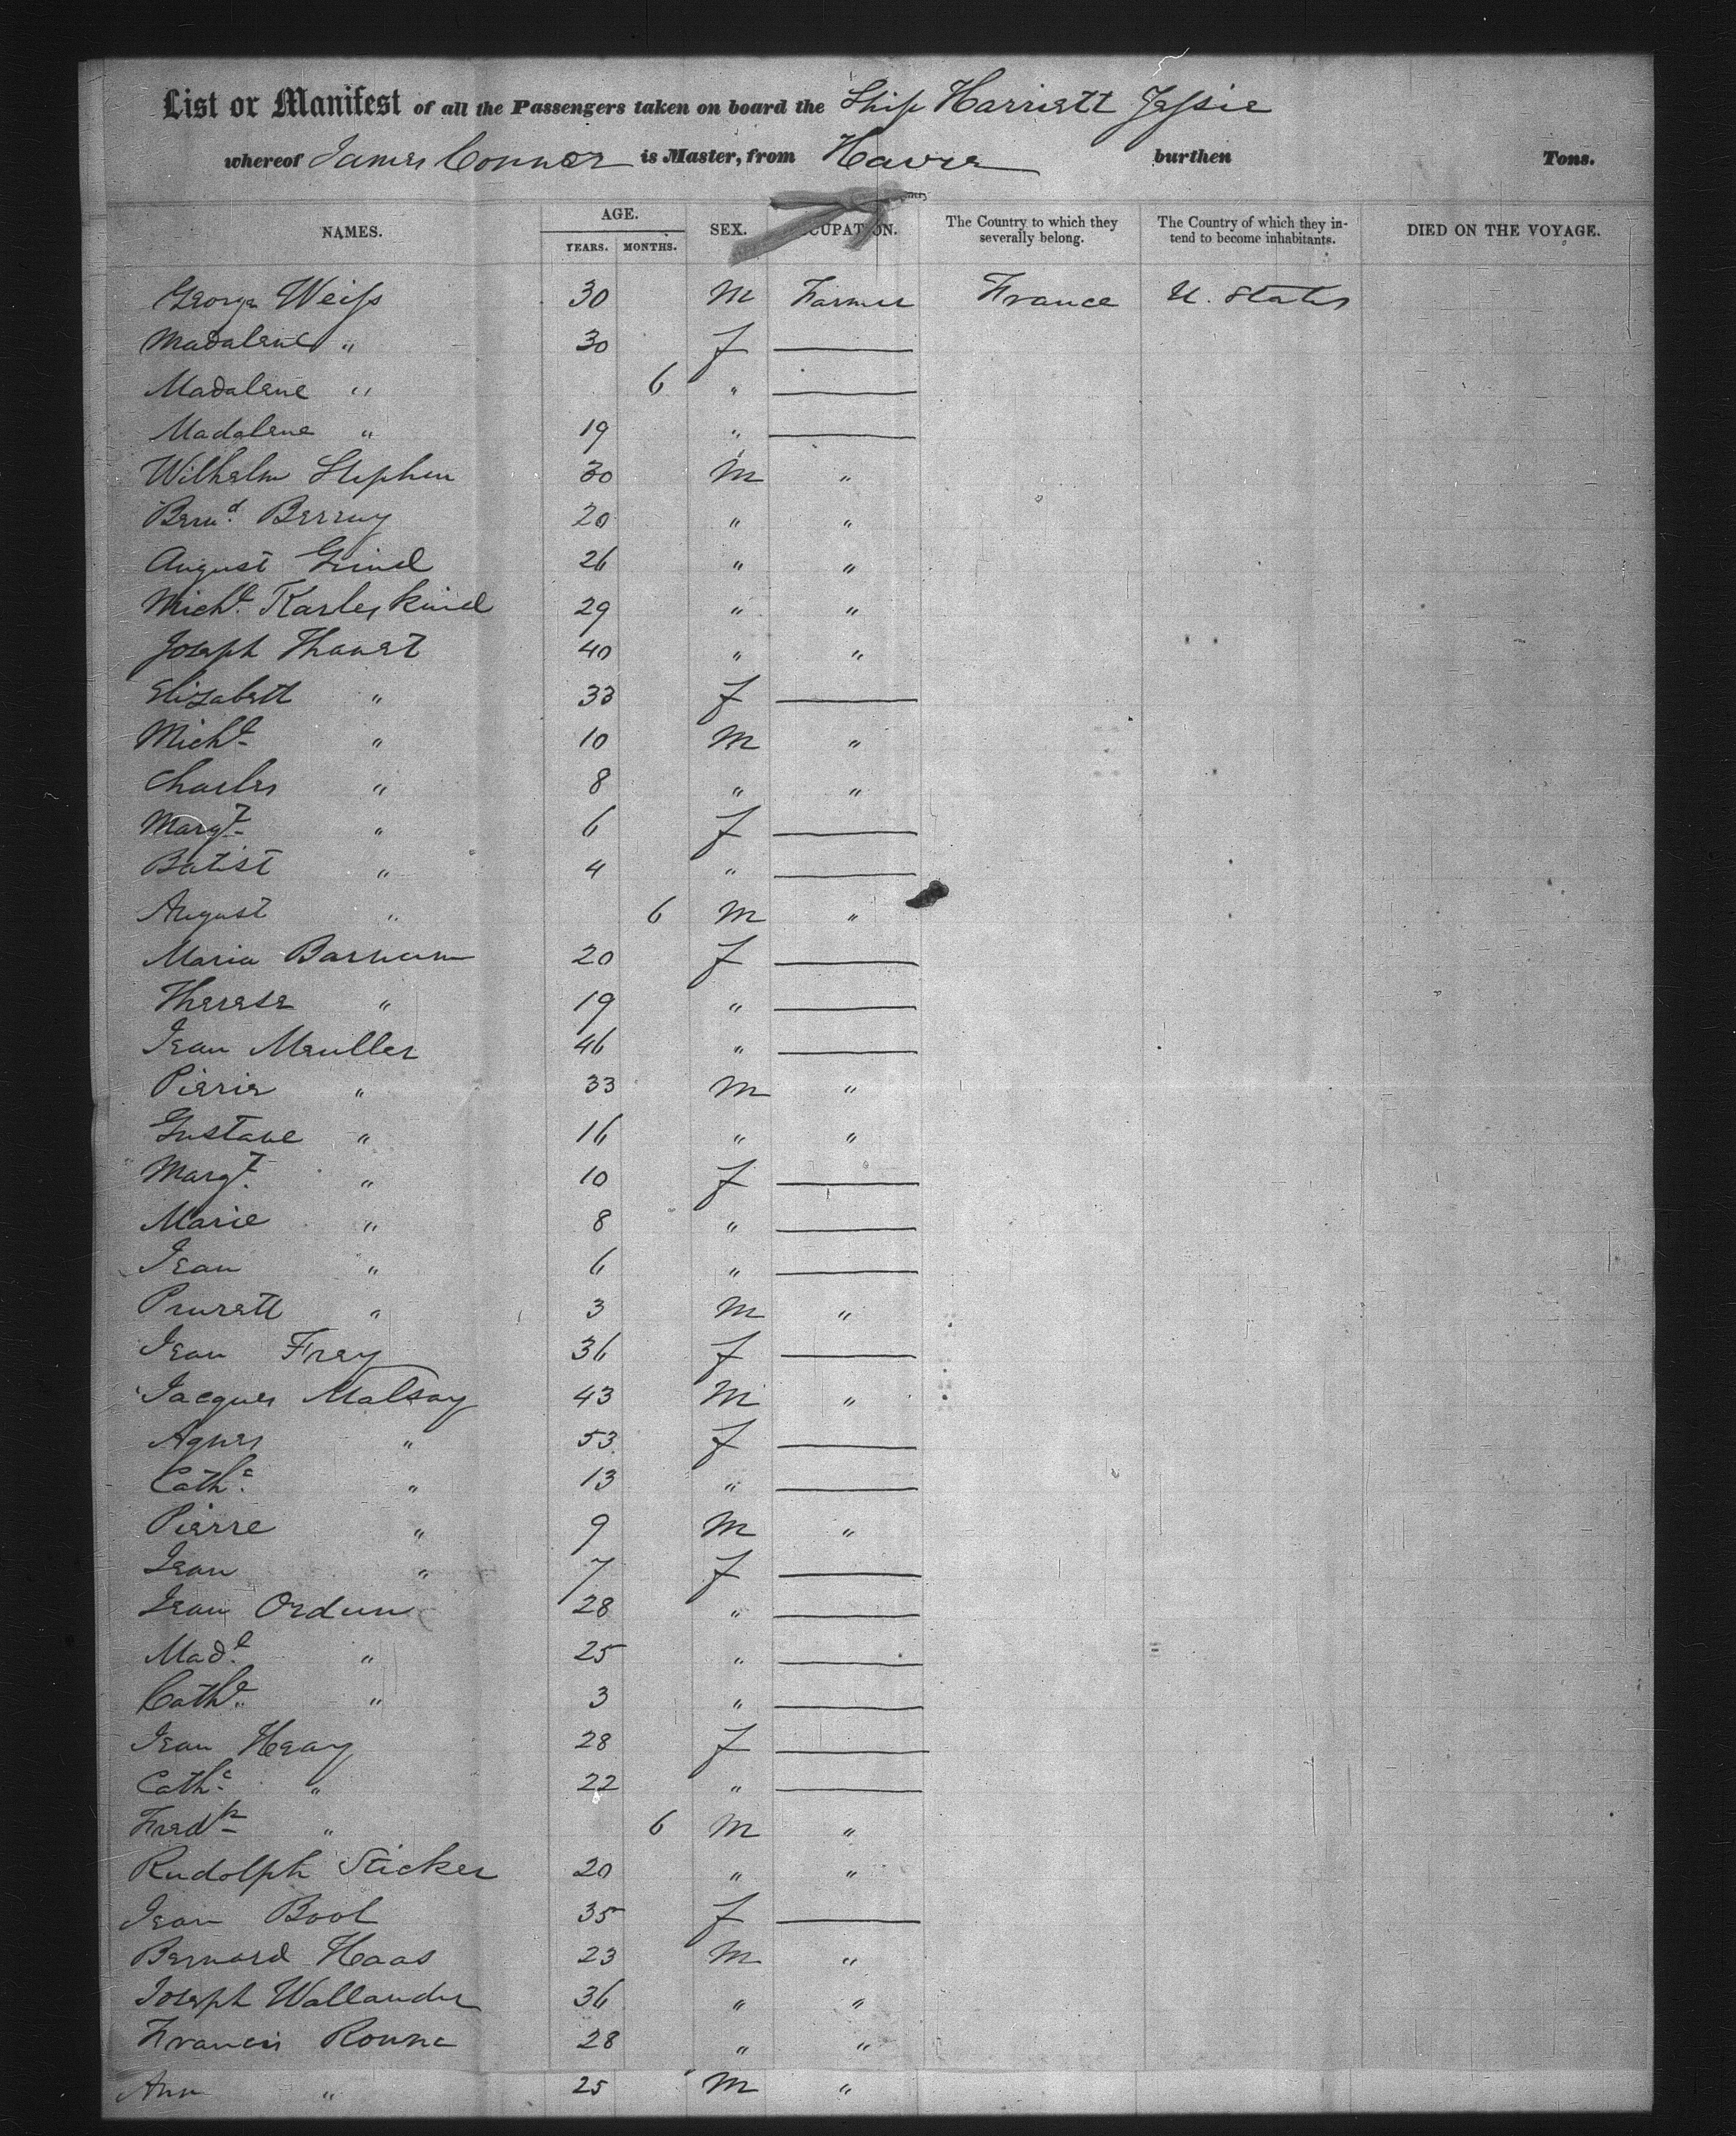 List or Manifest of all the Passengers taken on board the Ship Harriett Jessie
whereof James Connor is Master, from Havre burthen Tons.
NAMES. AGE. YEARS. MONTHS. SEX. OCCUPATION. The Country to which they severally belong. The Country of which they intend to become inhabitants. DIED ON THE VOYAGE.
George Weiss 30 M Farmer France U. States
Madalene " 30 f —
Madalene " 6 " —
Madalene " 19 " —
Wilhelm Stephen 30 M "
Bernd. 20 " "
August Grind 26 " "
Michl. Karleskind 29 " "
Joseph Thanet 40 " "
Elizabett " 33 f —
Michl. " 10 M "
Charles " 8 " "
Margt. " 6 f —
Batist " 4 " —
August " 6 M "
Maria Barnum 20 f —
Therese " 19 " —
Jean Meuller 46 " —
Pierre " 33 M "
Gustave " 16 " "
Margt. " 10 f —
Marie " 8 " —
Jean " 6 " —
" 3 M "
Jean Frey 36 f —
Jacques Malsay 43 M "
Agnes " 53 f —
Cathe. " 13 " —
Pierre " 9 M "
Jean " 7 f —
Jean Ordun 28 " —
Madl. " 25 " —
Cathe. " 3 " —
Jean Heay 28 f —
Cathe. " 22 " —
Fredk " 6 M "
Rudolph Sticker 20 " "
Jean Bool 35 f —
Bernard Haas 23 M "
Joseph Wallander 36 " "
Francis Roune 28 " "
Ann " 25 M "